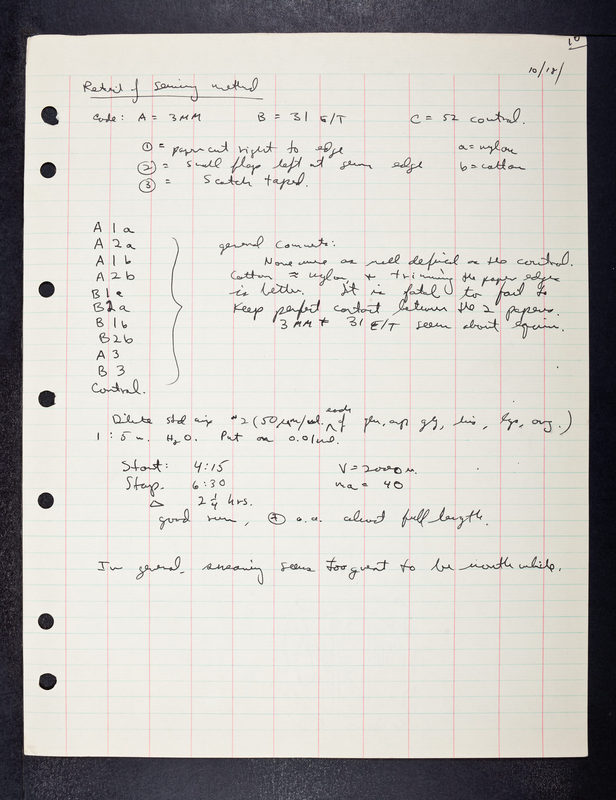 10/18/
Retrial of sewing method
Code: A = 3MM B = 31 E/T C = 52 control.
① = paper cut right to edge a = nylon
② = small flap left at sewn edge b = cotton
③ = Scotch taped.
A 1 a
A 2 a
A 1 b
A 2 b
B 1 a
B 2 a
B 1 b
B 2 b
A 3
B 3
Control.
general comments:
None were as well defined as the control.
Cotton ≈ nylon + trimming the paper edges
is better. It is fatal to fail to
keep perfect contact between the 2 papers.
3MM + 31 E/T seem about equiv.
Dilute std mix #2 (50 µm/ml. each of glu, asp, gly, his, lys, arg.)
1:5 w. H2O. Put on 0.01 ml.
Start: 4:15 V = 2000 v.
Stop. 6:30 ma = 40
△ 2 1/4 hrs.
good run, ⊕ a.a. almost full length.
In general, smearing seems too great to be worth while.